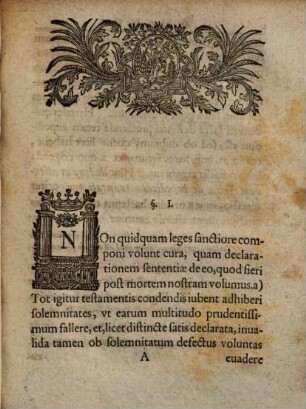 §. I.
NOn quidquam leges sanctiore com-
poni volunt cura, quam declara-
tionem sententiæ de eo, quod fieri
post mortem nostram volumus. a)
Tot igitur testamentis condendis iubent adhiberi
solemnitates, vt earum multitudo prudentissi-
mum fallere, et, licet distincte satis declarata, inua-
lida tamen ob solemnitatum defectus voluntas
A euadere